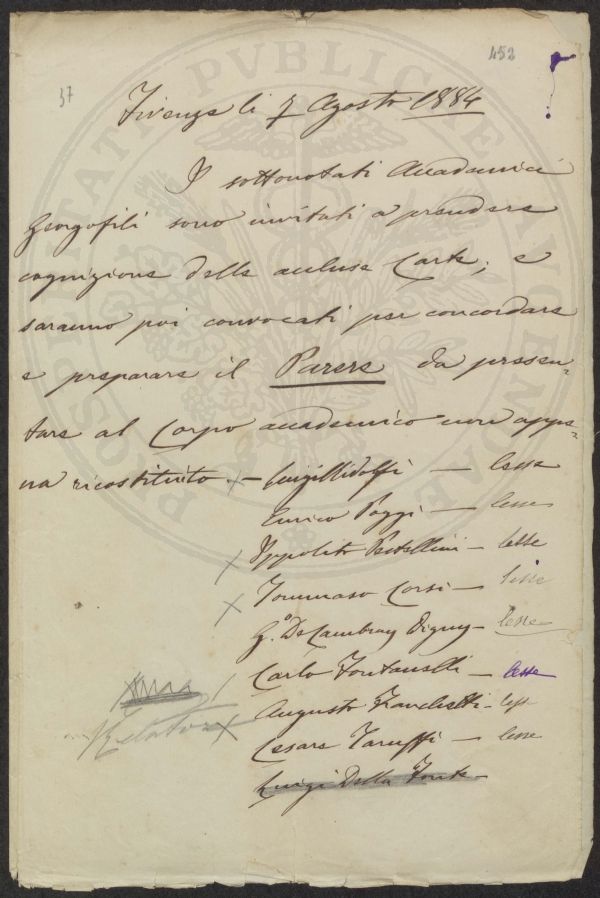 452
37
Firenze li 7 Agosto 1884
I sottonotati Accademici
Georgofili sono invitati a prendere
cognizione delle accluse Carte; e
saranno poi convocati per concordare
e preparare il Parere da presen=
tare al Corpo accademico ove appe=
na ricostituito. — Luigi Ridolfi — Lesse
Enrico Poggi — lesse
Ippolito Pestellini — lesse
Tommaso Corsi — lesse
G.o De Cambray Digny — lesse
Carlo Fontanelli — lesse
Augusto Franchetti — lesse
Relatore
Cesare Taruffi — lesse
Luigi Della Fonte —
PROSPERITATI PVBLICAE AVGENDAE